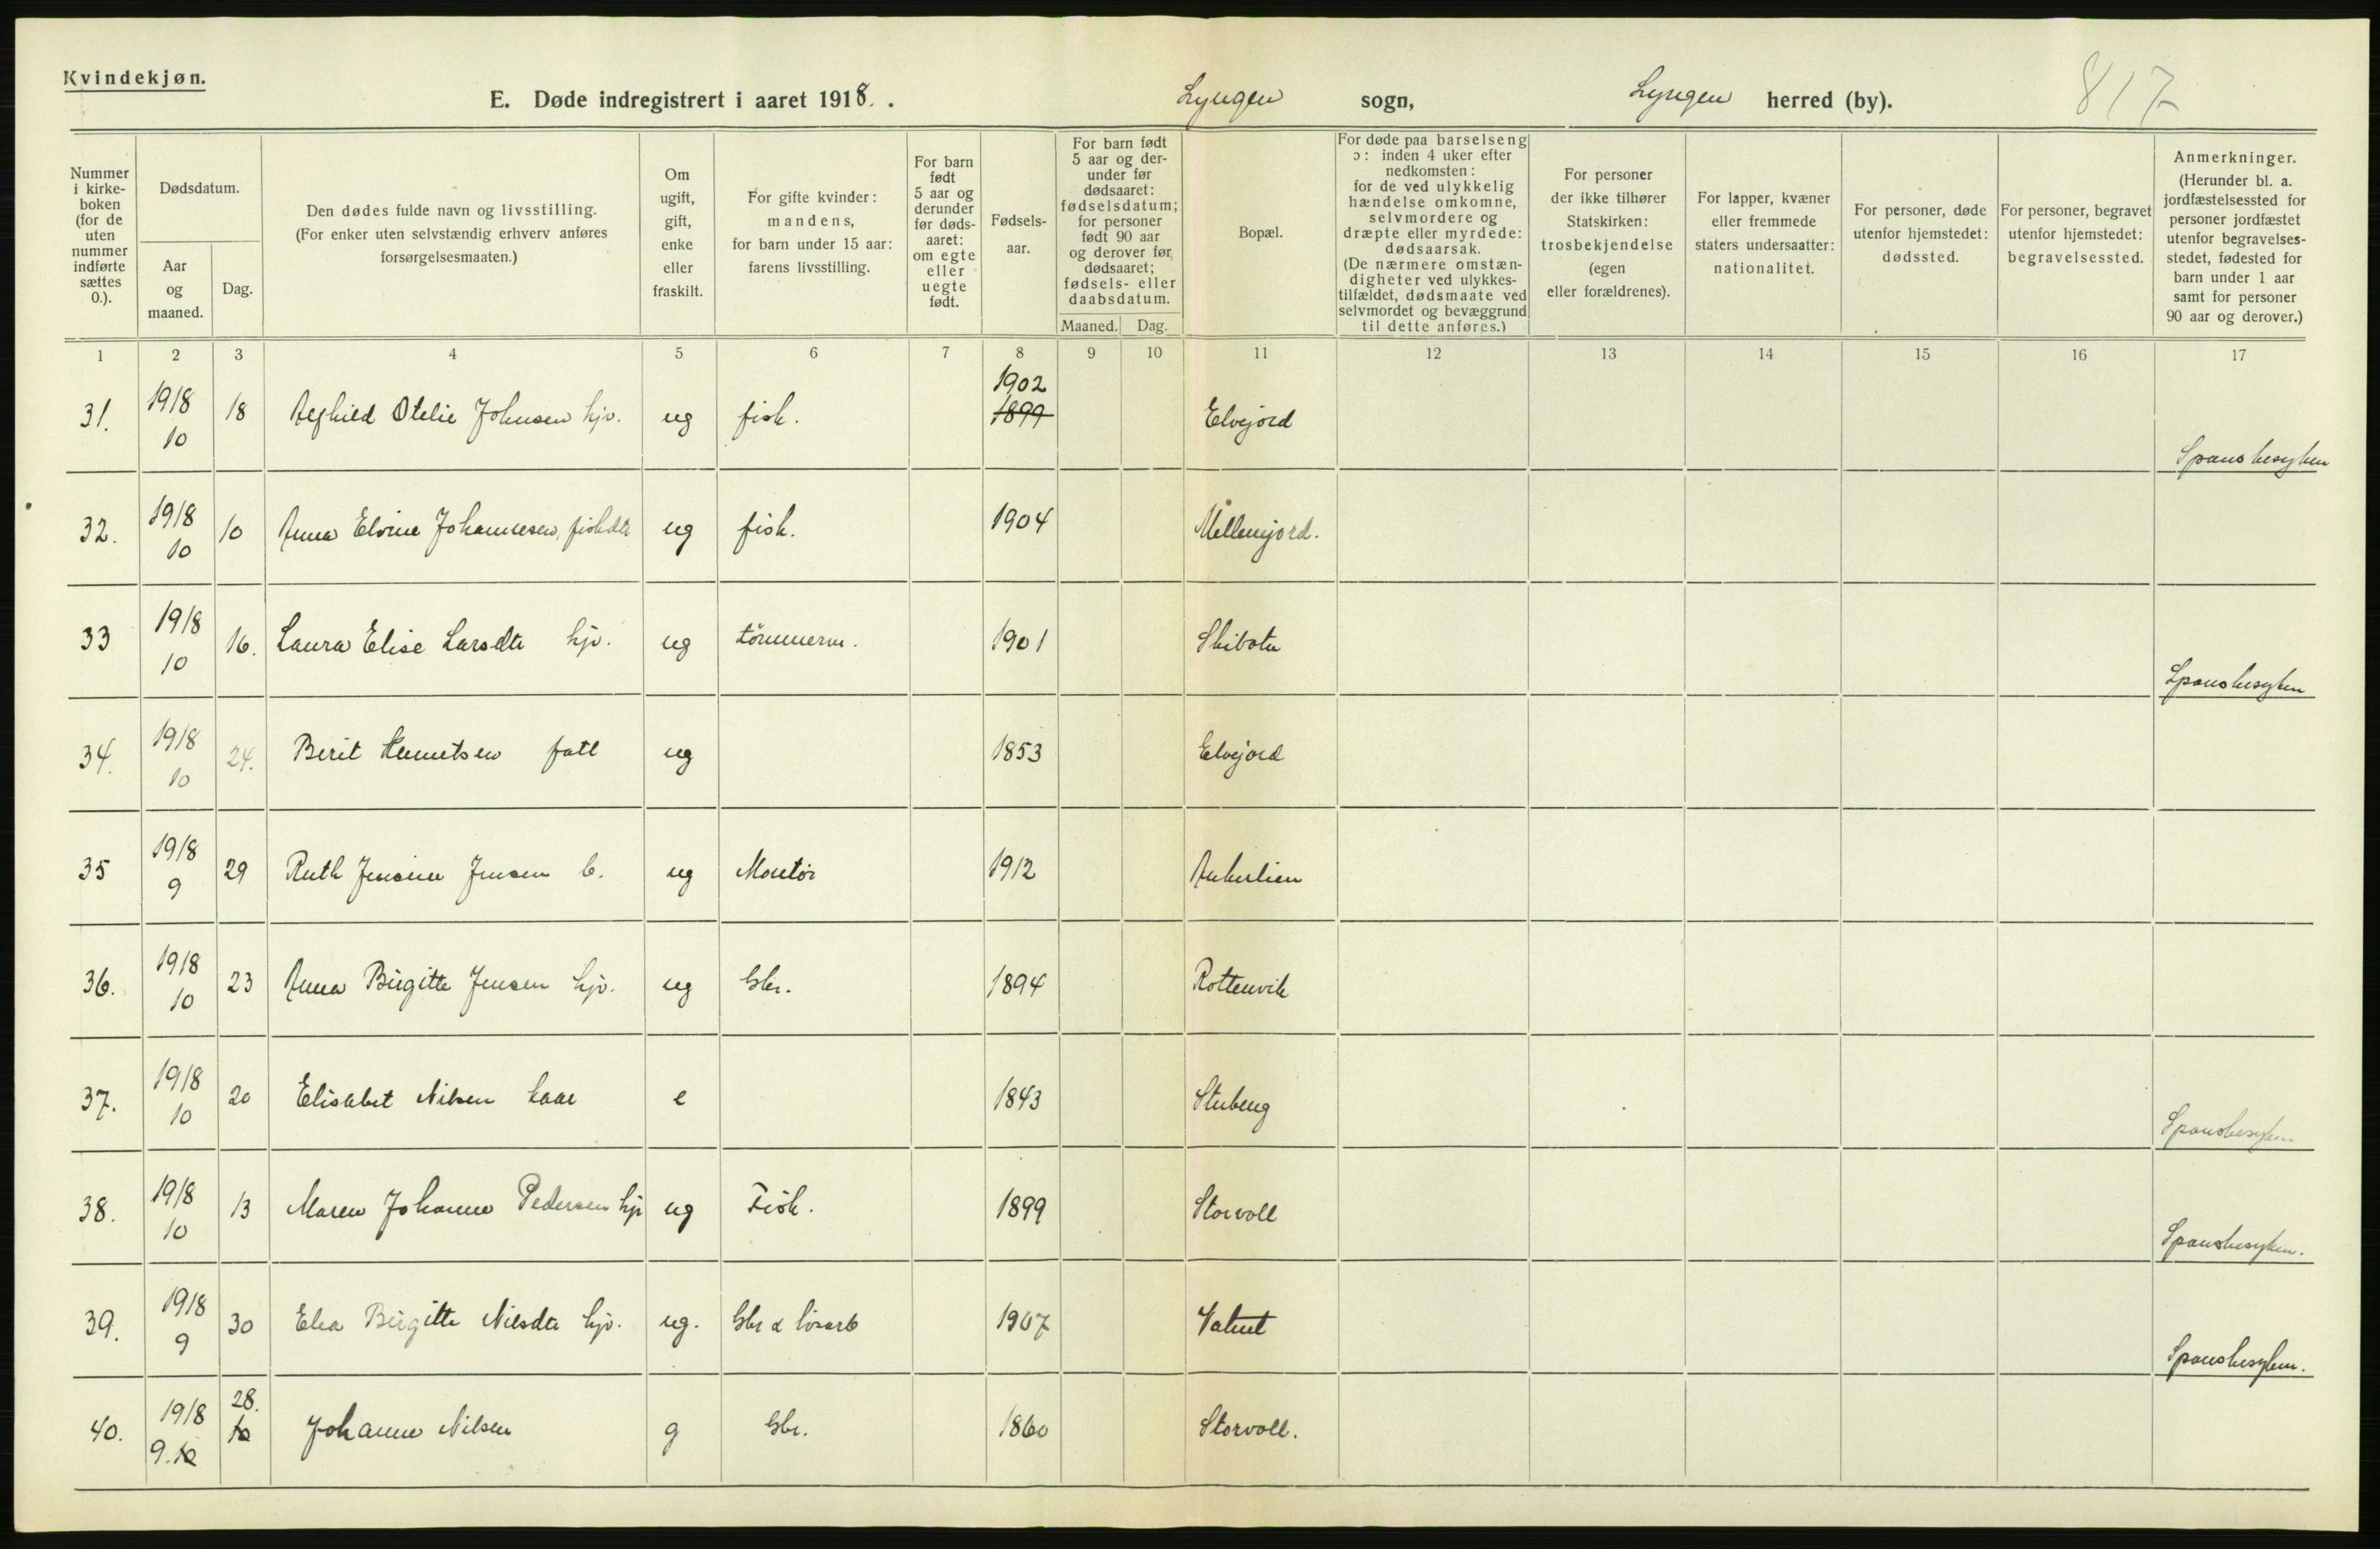 Kvindekjøn.
E. Døde indregistrert i aaret 1918. . Lyngen sogn, Lyngen herred (by). 817
Nummer i kirke-boken (for de uten nummer indførte sættes 0.).
Dødsdatum.
Aar og maaned.
Dag.
Den dødes fulde navn og livsstilling.
(For enker uten selvstændig erhverv anføres forsørgelsesmaaten.)
Om ugift, gift, enke eller fraskilt.
For gifte kvinder: mandens, for barn under 15 aar: farens livsstilling.
For barn født 5 aar og derunder før døds-aaret: om egte eller uegte født.
Fødsels-aar.
For barn født 5 aar og der-under før dødsaaret: fødselsdatum; for personer født 90 aar og derover før dødsaaret; fødsels- eller daabsdatum.
Maaned. Dag.
Bopæl.
For døde paa barselseng ɔ: inden 4 uker efter nedkomsten: for de ved ulykkelig hændelse omkomne, selvmordere og dræpte eller myrdede: dødsaarsak. (De nærmere omstæn-digheter ved ulykkes-tilfældet, dødsmaate ved selvmordet og bevæggrund til dette anføres.)
For personer der ikke tilhører Statskirken: trosbekjendelse (egen eller forældrenes).
For lapper, kvæner eller fremmede staters undersaatter: nationalitet.
For personer, døde utenfor hjemstedet: dødssted.
For personer, begravet utenfor hjemstedet: begravelsessted.
Anmerkninger. (Herunder bl. a. jordfæstelsessted for personer jordfæstet utenfor begravelses-stedet, fødested for barn under 1 aar samt for personer 90 aar og derover.)
1 2 3 4 5 6 7 8 9 10 11 12 13 14 15 16 17
31. 1918 10 18 Otelie Johnsen hjv. ug fisk. 1902 1899 Elvejord Spanskesyken
32. 1918 10 10 Anna Elvine Johannesen, fiskdtr ug fisk. 1904 Mellemjord.
33 1918 10 16. Laura Elise Larsdtr hjv. ug tömmerm. 1901 Skibotn Spanskesyken
34. 1918 10 24. Berit Knutsen fatt ug 1853 Elvejord
35 1918 9 29 Ruth Jensine Jensen b. ug Montör 1912 Ankerlien
36. 1918 10 23 Anna Birgitte Jensen hjv. ug Gbr. 1894 Rottenvik
37. 1918 10 20 Elisabet Nilsen kaar e 1843 Stubeng Spanskesyken
38. 1918 10 13 Maren Johanne Pedersen hjv ug Fisk. 1899 Storvoll Spanskesyken.
39. 1918 9 30 Elea Birgitte Nilsdtr hjv. ug. Gbr & lösarb 1907 Spanskesyken.
40. 1918 9.10 28. 10 Johanne Nilsen g Gbr. 1860 Storvoll.